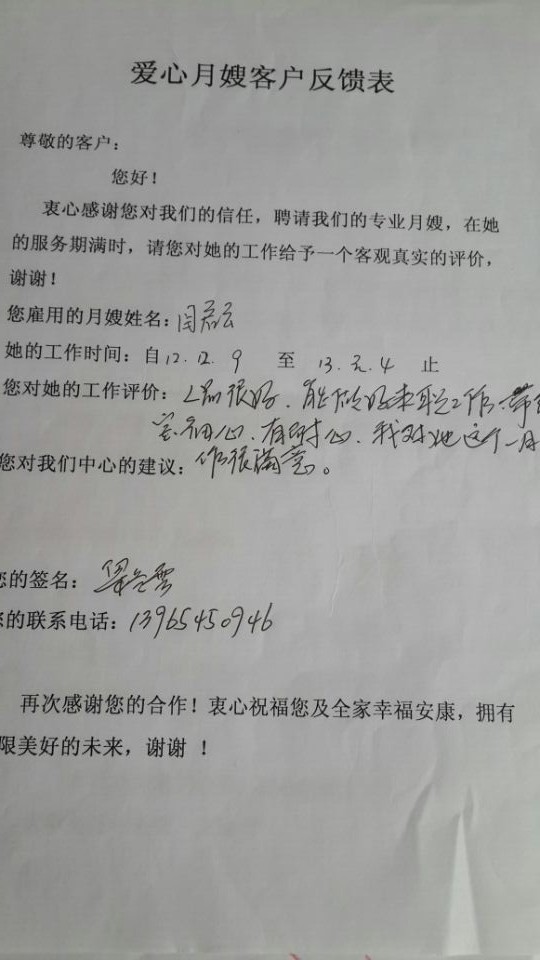 爱心月嫂客户反馈表
尊敬的客户：
您好！
衷心感谢您对我们的信任，聘请我们的专业月嫂，在她
的服务期满时，请您对她的工作给予一个客观真实的评价，
谢谢！
您雇用的月嫂姓名：闫
她的工作时间：自12.12.9 至 13.元.4 止
您对她的工作评价：人品很好.能做好本职工作.带
宝细心.有耐心.我对她这个月
您对我们中心的建议：作很满意。
您的签名：
您的联系电话：13965450946
再次感谢您的合作！衷心祝福您及全家幸福安康，拥有
限美好的未来，谢谢 ！